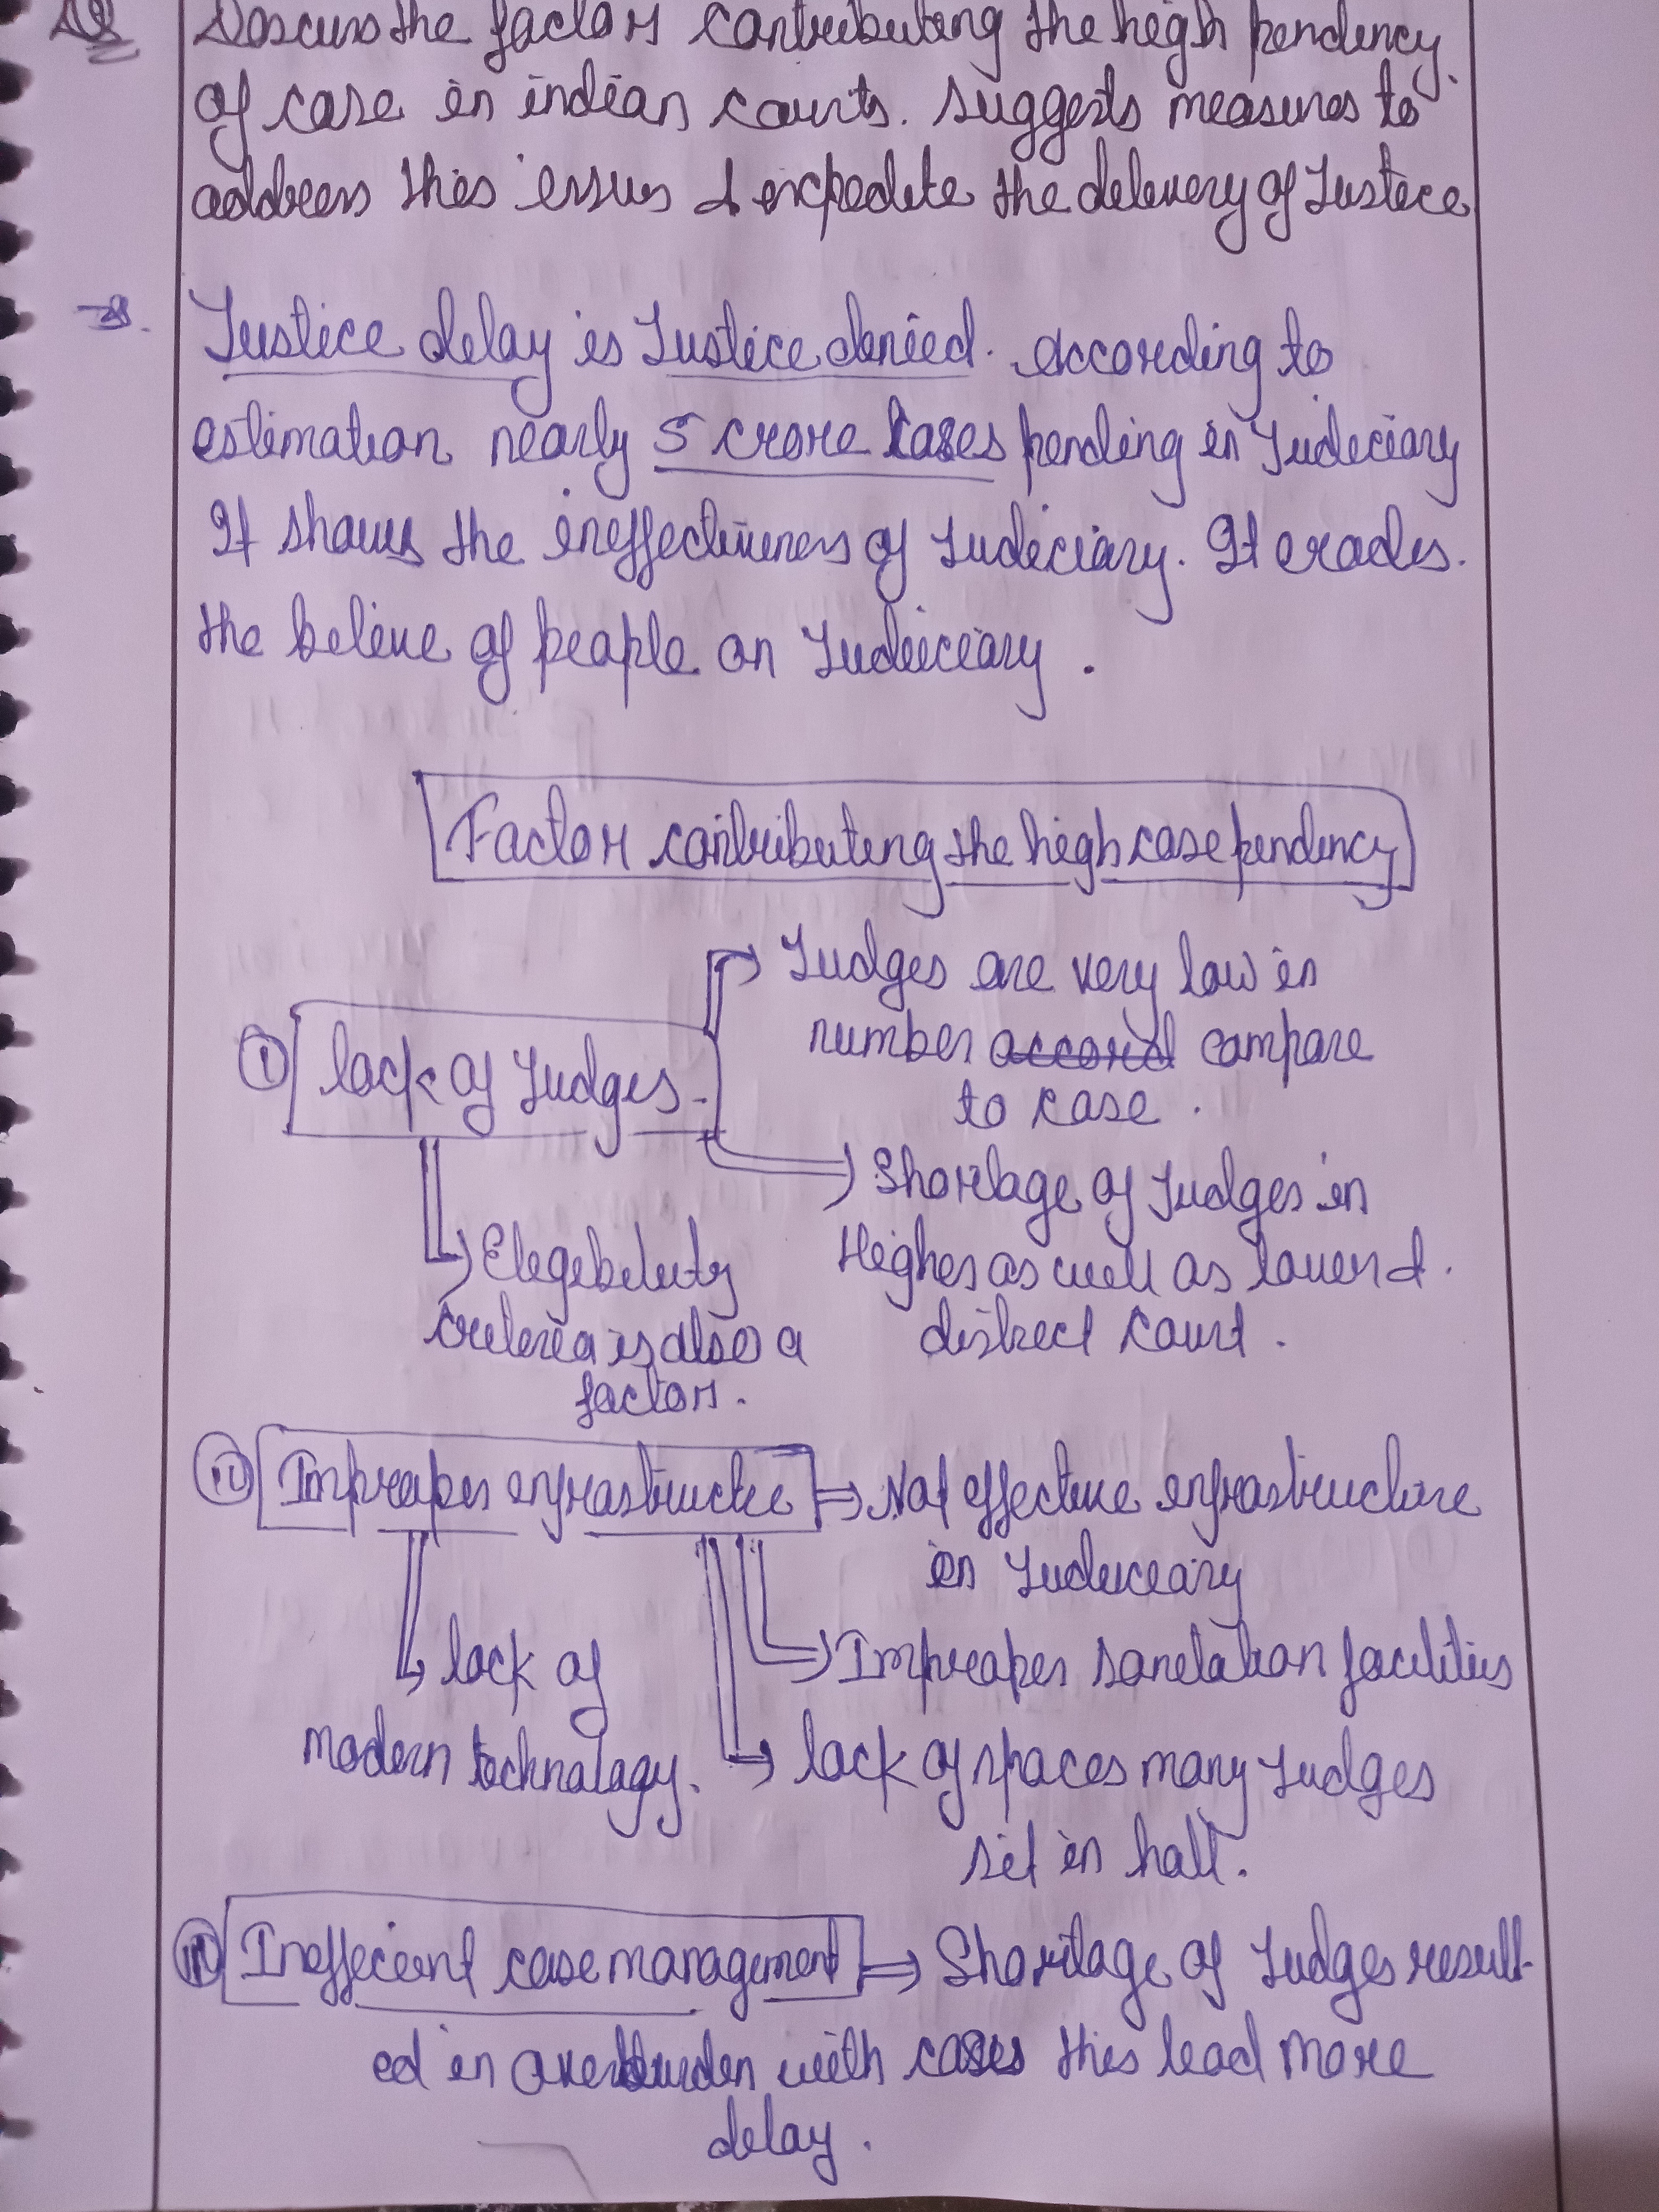 Discuss the factors contributing the high pendency
of case in indian courts. suggests measures to
address this issues & expedite the delivery of Justice
Justice delay is Justice denied. According to
estimation nearly 5 crore cases pending in Judiciary
It shows the ineffectiveness of Judiciary. It erodes.
the believe of people on Judiciary.
Factor contributing the high case pendency
① lack of Judges.
→ Judges are very low in
number accord compare
to case.
→ Shortage of Judges in
Higher as well as lower &.
district court.
→ Elegebility
criteria is also a
factor.
⑪ Improper infrastructre ⇒ Not effective infrastructure
in Judiciary
→ Improper sanitation facilities
→ lack of
modern technology.
→ lack of spaces many Judges
sit in hall.
⑪⑪ Ineffecient case management ⇒ Shortage of Judges result-
ed in overburden with cases this lead more
delay.